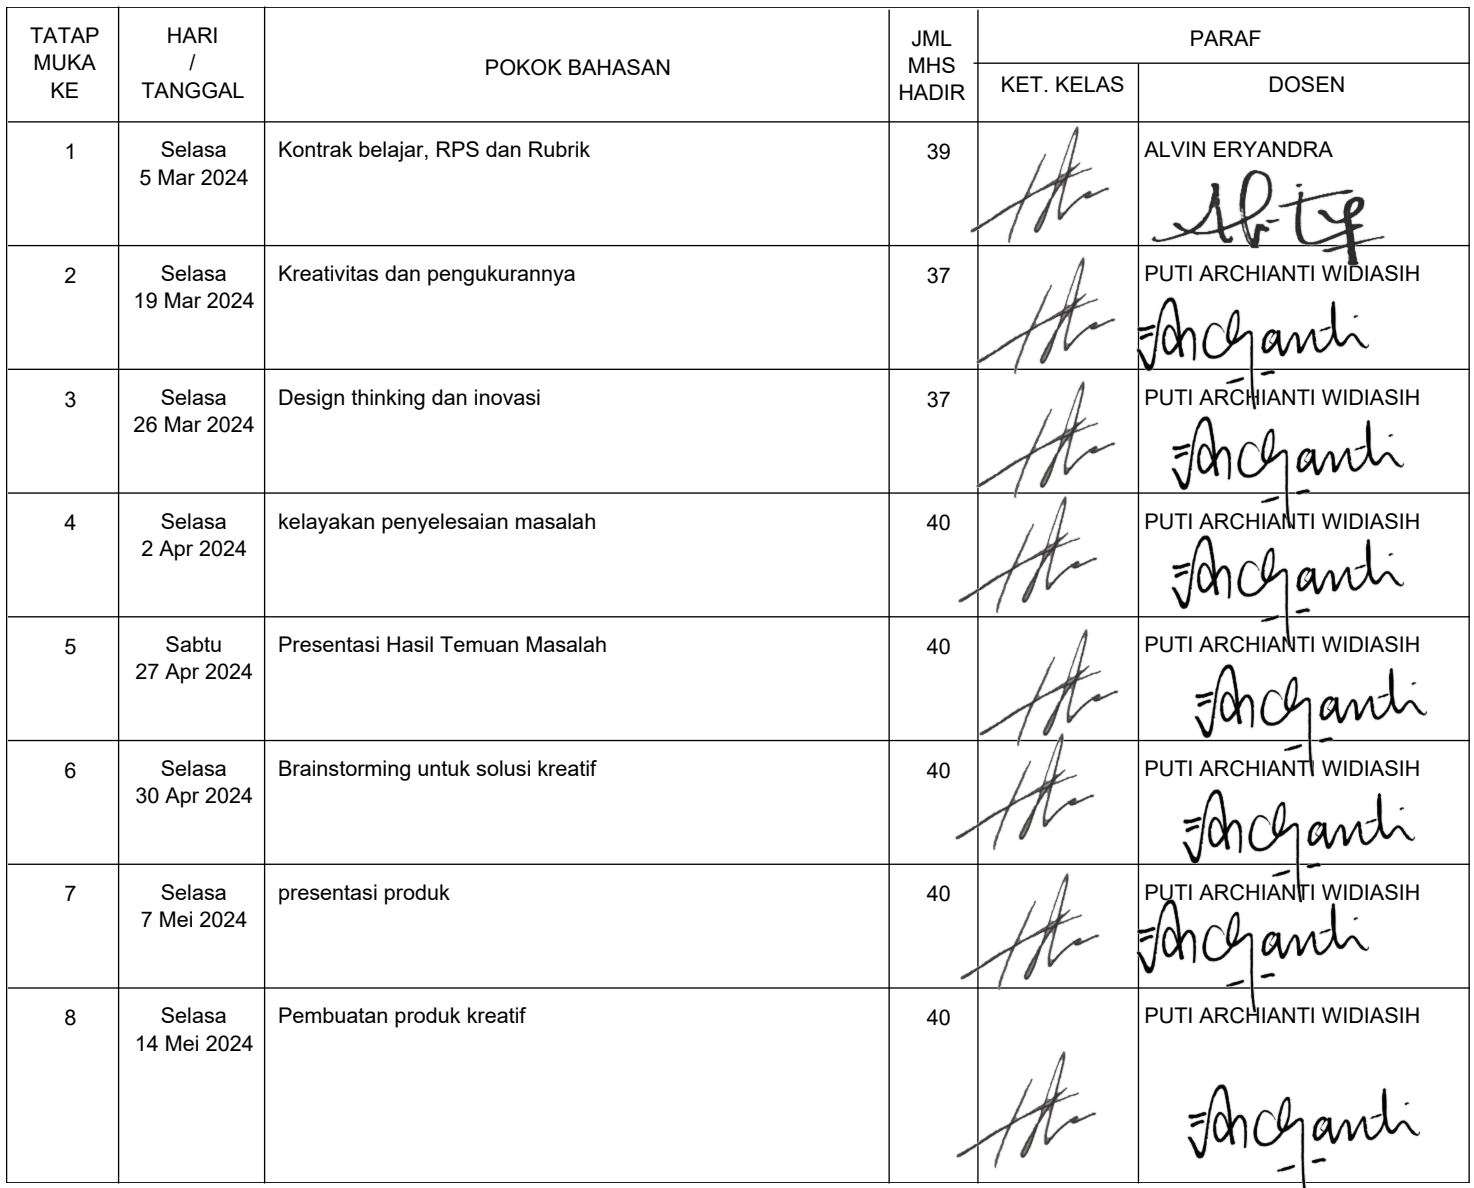 TATAP MUKA KE
HARI / TANGGAL
POKOK BAHASAN
JML MHS HADIR
PARAF
KET. KELAS
DOSEN
1
Selasa
5 Mar 2024
Kontrak belajar, RPS dan Rubrik
39
ALVIN ERYANDRA
2
Selasa
19 Mar 2024
Kreativitas dan pengukurannya
37
PUTI ARCHIANTI WIDIASIH
Archyanti
3
Selasa
26 Mar 2024
Design thinking dan inovasi
37
PUTI ARCHIANTI WIDIASIH
Archyanti
4
Selasa
2 Apr 2024
kelayakan penyelesaian masalah
40
PUTI ARCHIANTI WIDIASIH
Archyanti
5
Sabtu
27 Apr 2024
Presentasi Hasil Temuan Masalah
40
PUTI ARCHIANTI WIDIASIH
Archyanti
6
Selasa
30 Apr 2024
Brainstorming untuk solusi kreatif
40
PUTI ARCHIANTI WIDIASIH
Archyanti
7
Selasa
7 Mei 2024
presentasi produk
40
PUTI ARCHIANTI WIDIASIH
Archyanti
8
Selasa
14 Mei 2024
Pembuatan produk kreatif
40
PUTI ARCHIANTI WIDIASIH
Archyanti